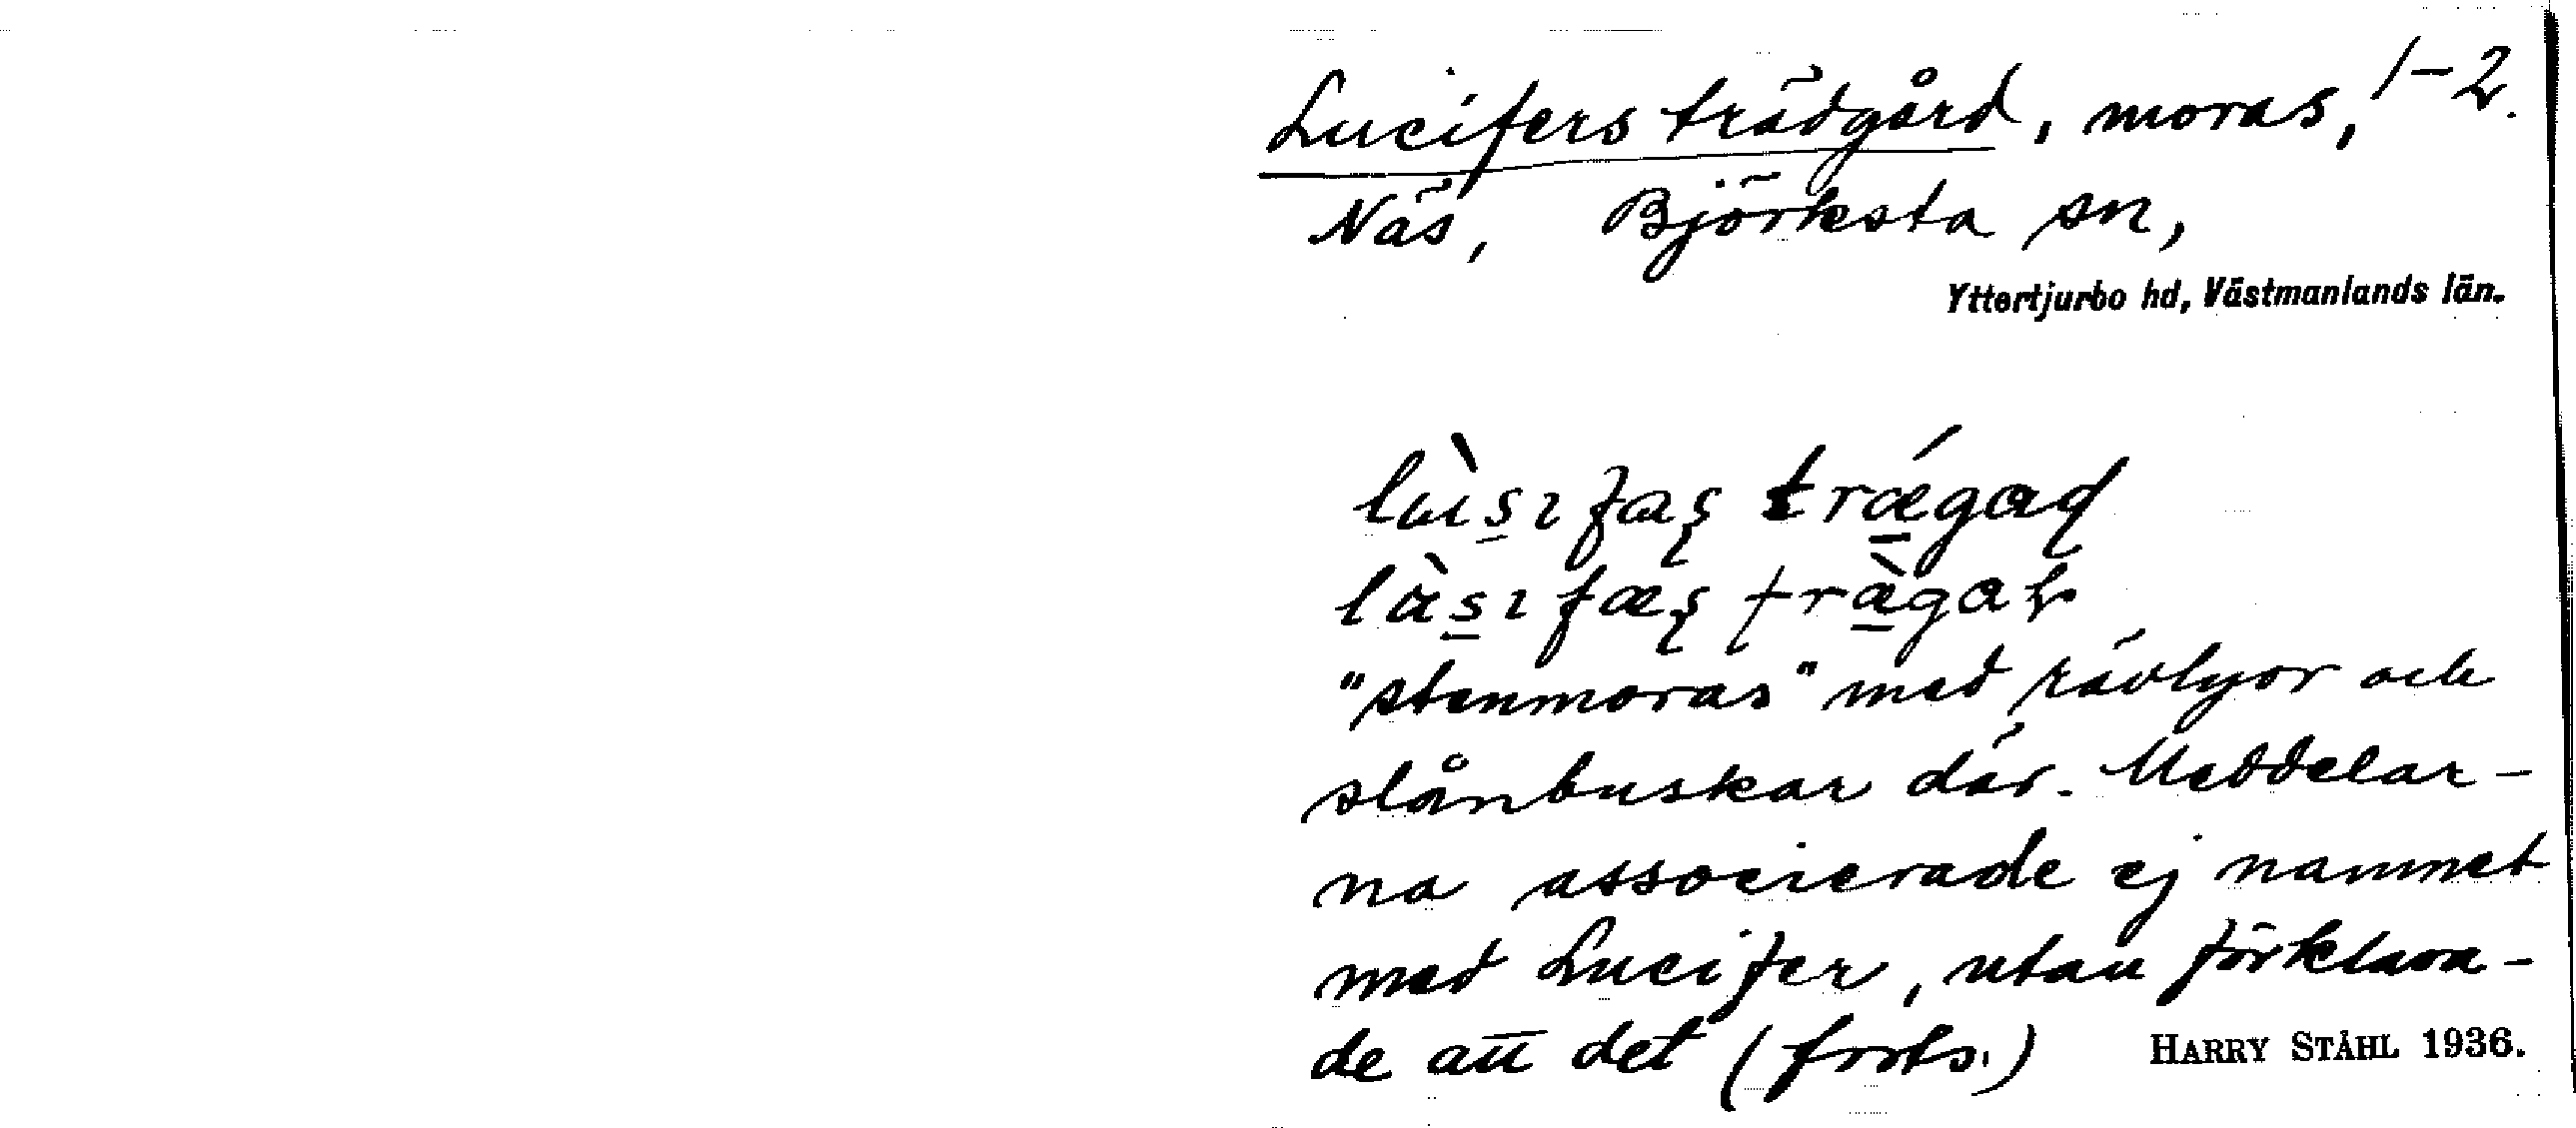 Lucifers trädgård, moras, 1-2.
Näs, Björksta sn,
Yttertjurbo hd, Västmanlands län.
"stenmoras" med rävlyor och
slånbuskar där. Meddelar-
na associerade ej namnet
med Lucifer, utan förklara-
de att det (forts.) HARRY STÅHL 1936.